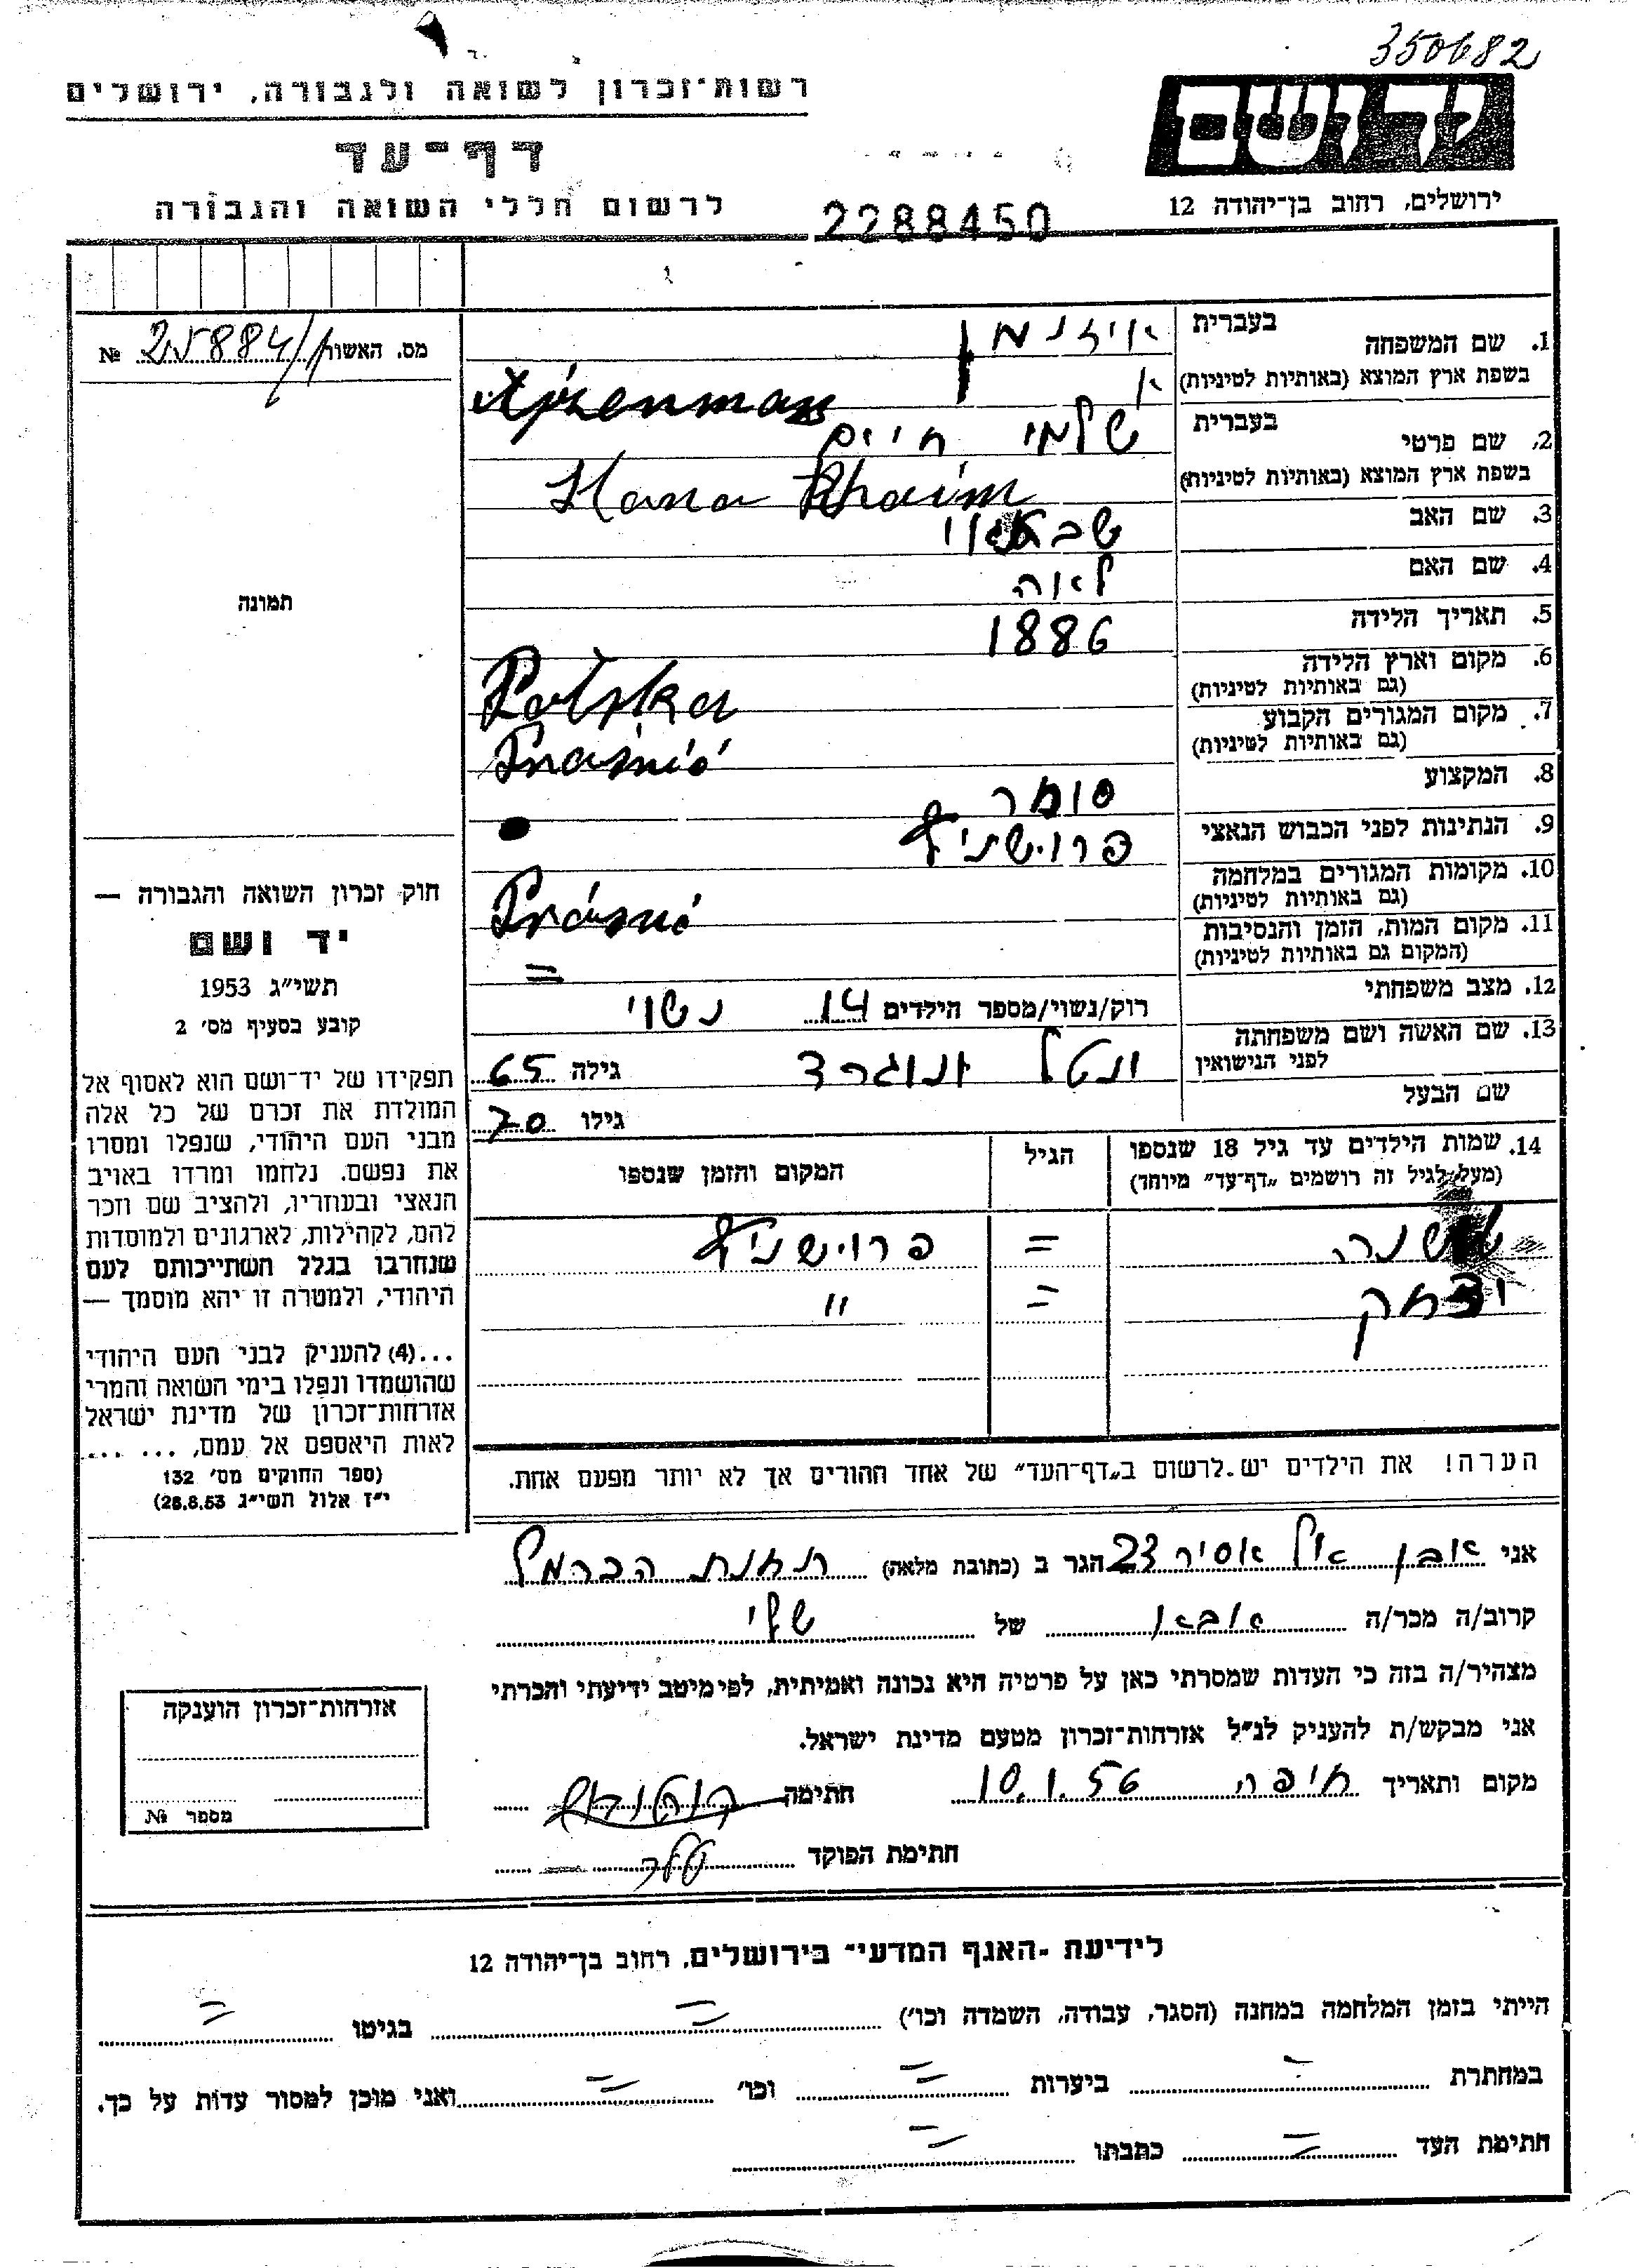 350682
רשות־זכרון לשואה ולגבורה, ירושלים
יד ושם
דף־עד
לרשום חללי השואה והגבורה
2288450
ירושלים, רחוב בן־יהודה 12
מס. האשור 25884/1 №
1. שם המשפחה
בעברית
איזנמן
בשפת ארץ המוצא (באותיות לטיניות)
Ajzenman
2. שם פרטי
בעברית
חיים
בשפת ארץ המוצא (באותיות לטיניות)
3. שם האב
4. שם האם
לאה
5. תאריך הלידה
1886
6. מקום וארץ הלידה
(גם באותיות לטיניות)
Polska
7. מקום המגורים הקבוע
(גם באותיות לטיניות)
8. המקצוע
סוחר
9. הנתינות לפני הכבוש הנאצי
10. מקומות המגורים במלחמה
(גם באותיות לטיניות)
11. מקום המות, הזמן והנסיבות
(המקום גם באותיות לטיניות)
=
12. מצב משפחתי
רוק/נשוי/מספר הילדים 14 נשוי
13. שם האשה ושם משפחתה
לפני הנישואין
גילה 65
שם הבעל
גילו 70
14. שמות הילדים עד גיל 18 שנספו
(מעל לגיל זה רושמים „דף־עד" מיוחד)
הגיל
המקום והזמן שנספו
=
יצחק = "
הערה! את הילדים יש לרשום ב„דף־העד" של אחד ההורים אך לא יותר מפעם אחת.
תמונה
חוק זכרון השואה והגבורה —
יד ושם
תשי״ג 1953
קובע בסעיף מס׳ 2
תפקידו של יד־ושם הוא לאסוף אל
המולדת את זכרם של כל אלה
מבני העם היהודי, שנפלו ומסרו
את נפשם, נלחמו ומרדו באויב
הנאצי ובעוזריו, ולהציב שם וזכר
להם, לקהילות, לארגונים ולמוסדות
שנחרבו בגלל השתייכותם לעם
היהודי, ולמטרה זו יהא מוסמך —
...(4) להעניק לבני העם היהודי
שהושמדו ונפלו בימי השואה והמרי
אזרחות־זכרון של מדינת ישראל
לאות היאספם אל עמם, ... ...
(ספר החוקים מס׳ 132
י״ז אלול תשי״ג 28.8.53)
אני 23 הגר ב (כתובת מלאה) תחנת הכרמל
קרוב/ה מכר/ה של שלי
מצהיר/ה בזה כי העדות שמסרתי כאן על פרטיה היא נכונה ואמיתית, לפי מיטב ידיעתי והכרתי
אני מבקש/ת להעניק לנ״ל אזרחות־זכרון מטעם מדינת ישראל.
מקום ותאריך חיפה 10.1.56 חתימה
חתימת הפוקד
אזרחות־זכרון הוענקה
מספר №
לידיעת „האגף המדעי" בירושלים, רחוב בן־יהודה 12
הייתי בזמן המלחמה במחנה (הסגר, עבודה, השמדה וכו׳) = בגיטו =
במחתרת = ביערות = וכו׳ = ואני מוכן למסור עדות על כך.
חתימת העד = כתבתו =